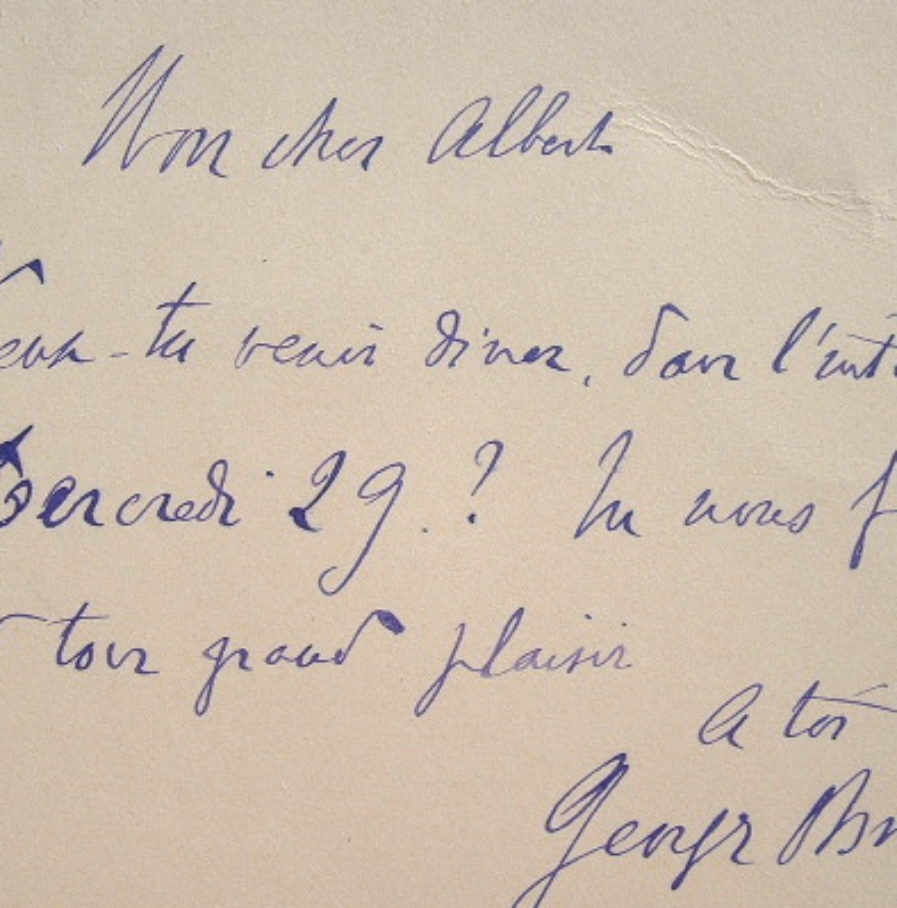 Mon cher Albert
Veux-tu venir diner, dans l'inti
Mercredi 29. ? Tu nous f
à tous grand plaisir
A toi
Georges